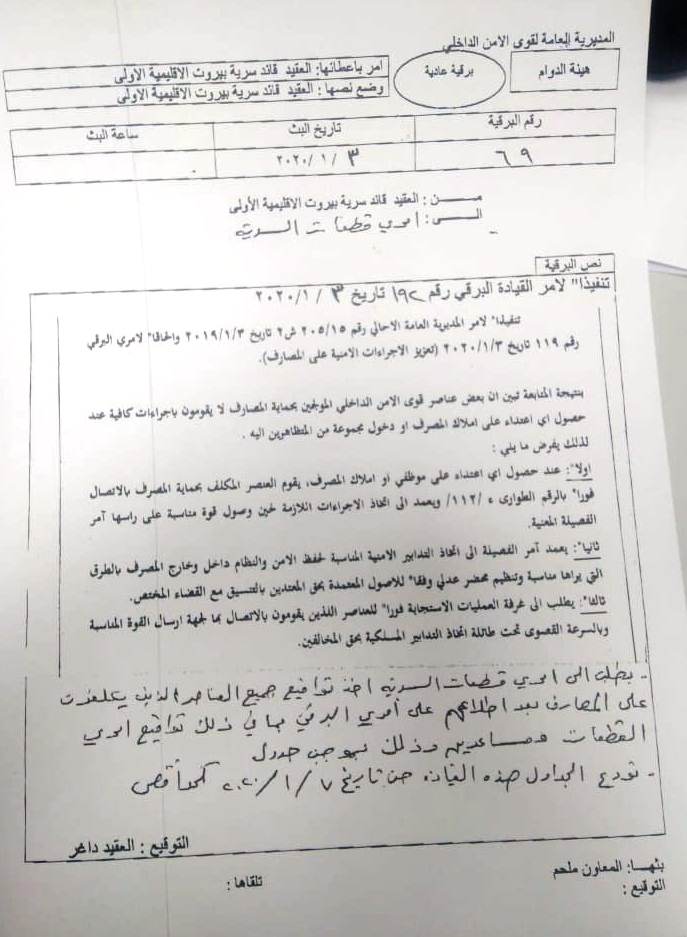 المديرية العامة لقوى الامن الداخلي
هيئة الدوام
برقية عادية
امر باعطائها: العقيد قائد سرية بيروت الاقليمية الاولى
وضع نصها : العقيد قائد سرية بيروت الاقليمية الاولى
رقم البرقية
تاريخ البث
ساعة البث
٦٩
٣ / ١ / ٢٠٢٠
مـــــن : العقيد قائد سرية بيروت الاقليمية الأولى
الـــــى : امري قطعات السرية
نص البرقية
تنفيذا" لامر القيادة البرقي رقم ١٩٢ تاريخ ٣ / ٢٠٢٠/١
تنفيذا" لامر المديرية العامة الاحالي رقم ٢٠٥/١٥ ش٢ تاريخ ٢٠١٩/١/٣ والحاقا" لامري البرقي
رقم ١١٩ تاريخ ٢٠٢٠/١/٣ (تعزيز الاجراءات الامنية على المصارف).
بنتيجة المتابعة تبين ان بعض عناصر قوى الامن الداخلي المولجين بحماية المصارف لا يقومون باجراءات كافية عند
حصول اي اعتداء على املاك المصرف او دخول مجموعة من المتظاهرين اليه .
لذلك يفرض ما يلي :
اولا": عند حصول اي اعتداء على موظفي او املاك المصرف، يقوم العنصر المكلف بحماية المصرف بالاتصال
فورا" بالرقم الطوارىء /١١٢/ ويعمد الى اتخاذ الاجراءات اللازمة لحين وصول قوة مناسبة على راسها آمر
الفصيلة المعنية.
ثانيا": يعمد آمر الفصيلة الى اتخاذ التدابير الامنية المناسبة لحفظ الامن والنظام داخل وخارج المصرف بالطرق
التي يراها مناسبة وتنظيم محضر عدلي وفقا" للاصول المعتمدة بحق المعتدين بالتنسيق مع القضاء المختص.
ثالثا": يطلب الى غرفة العمليات الاستجابة فورا" للعناصر اللذين يقومون بالاتصال بها لجهة ارسال القوة المناسبة
وبالسرعة القصوى تحت طائلة اتخاذ التدابير المسلكية بحق المخالفين.
- يطلب الى امري قطعات السرية اخذ تواقيع جميع العناصر الذين
على المصارف بعد اطلاعهم على أمري البرقي بما في ذلك تواقيع امري
القطعات ومساعديهم وذلك بموجب جدول
- تودع الجداول هذه القيادة من تاريخ ٢٠٢٠/١/٧ كحد أقصى
التوقيع : العقيد داغر
بثهـــا: المعاون ملحم
تلقاها :
التوقيع :